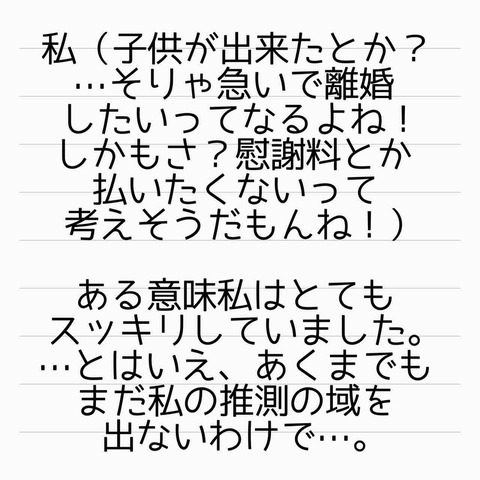 私（子供が出来たとか？
…そりゃ急いで離婚
したいってなるよね！
しかもさ？慰謝料とか
払いたくないって
考えそうだもんね！）
ある意味私はとても
スッキリしていました。
…とはいえ、あくまでも
まだ私の推測の域を
出ないわけで…。